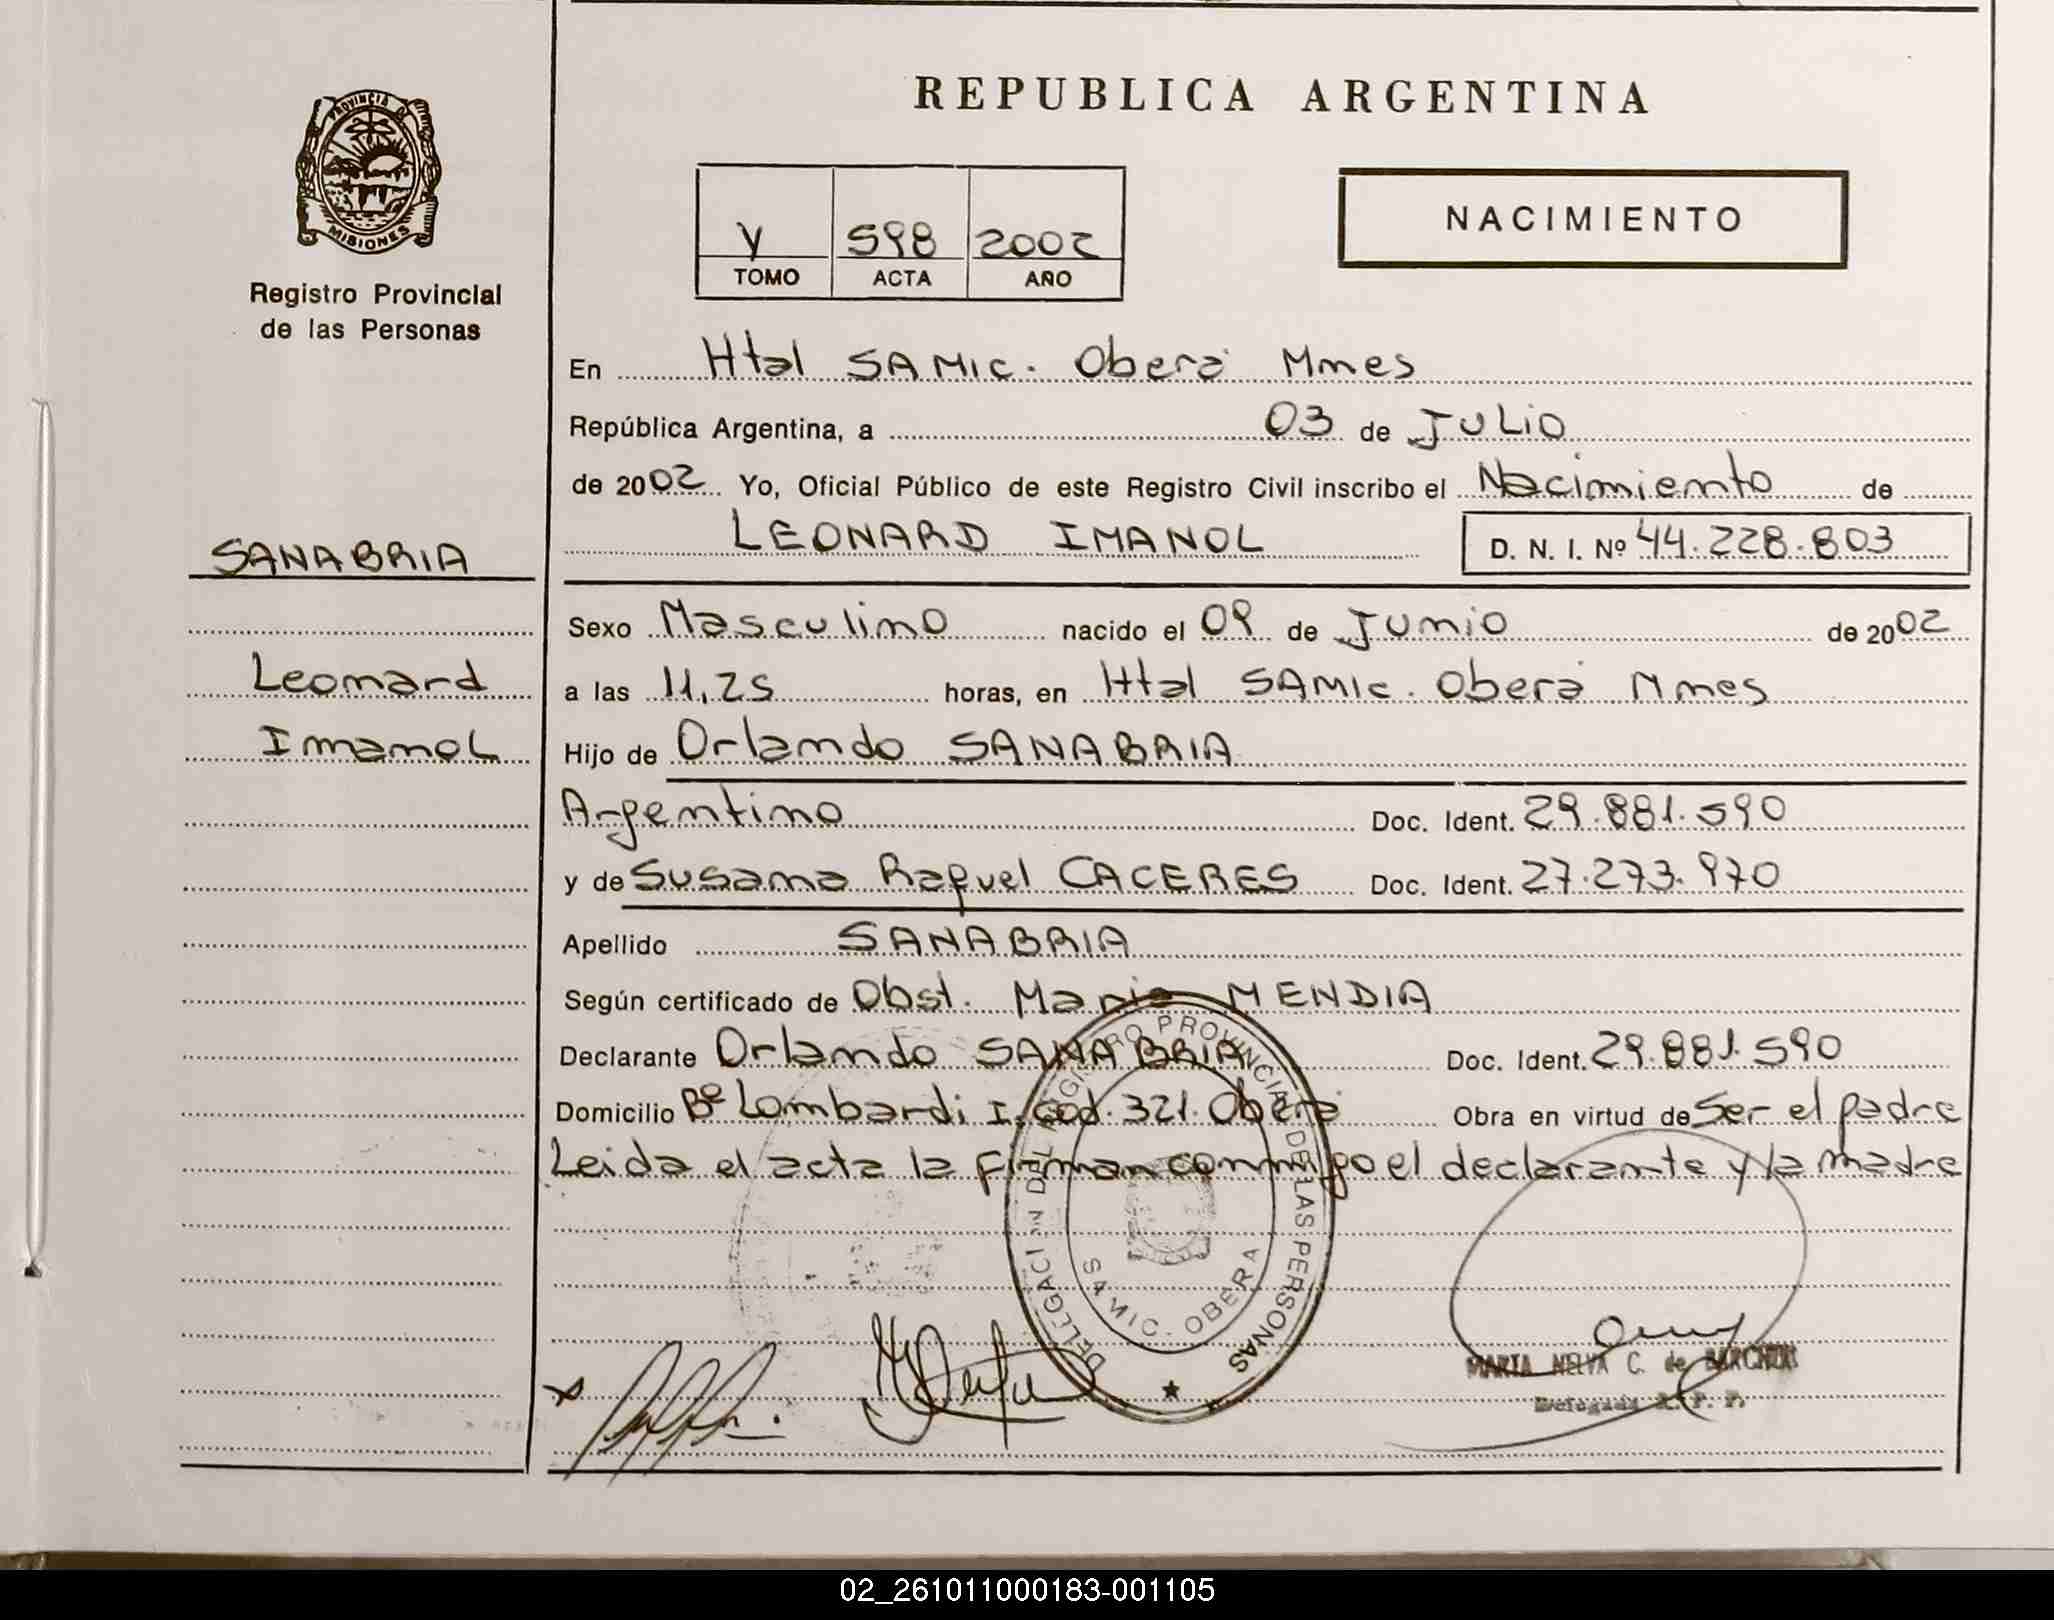 REPUBLICA ARGENTINA
PROVINCIA DE
MISIONES
Registro Provincial
de las Personas
Y 598 2002
TOMO ACTA AÑO
NACIMIENTO
En Htal SAMIC. Oberá Mnes
República Argentina, a 03 de JULIO
de 2002 Yo, Oficial Público de este Registro Civil inscribo el Nacimiento de
LEONARD IMANOL D. N. I. Nº 44.228.803
SANABRIA
Leonard
Imanol
Sexo Masculino nacido el 09 de Junio de 2002
a las 11,25 horas, en Htal SAMIC. Oberá Mnes
Hijo de Orlando SANABRIA
Argentino Doc. Ident. 29.881.590
y de Susana Raquel CACERES Doc. Ident. 27.273.970
Apellido SANABRIA
Según certificado de Obst. Maria MENDIA
Declarante Orlando SANABRIA Doc. Ident. 29.881.590
Domicilio Bº Lombardi I. Cod. 321. Oberá Obra en virtud de Ser el padre
Leida el acta la firman conmigo el declarante y la madre
DELEGACION DEL REGISTRO PROVINCIAL DE LAS PERSONAS
SAMIC. OBERA
MARIA NELVA C. de
Delegada R. P. P.
02_261011000183-001105